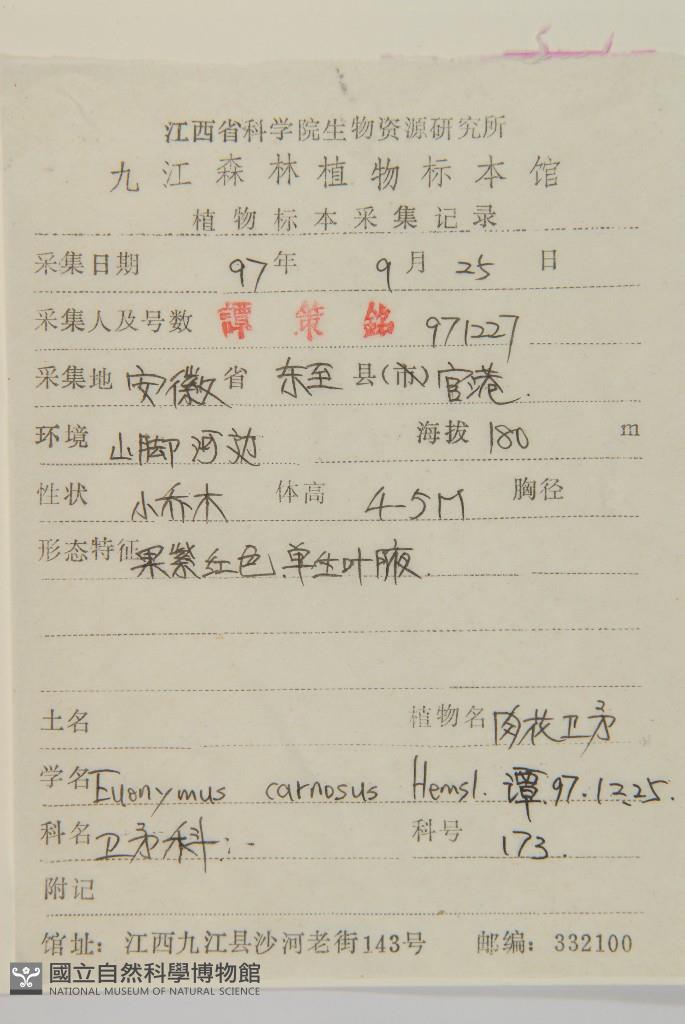 江西省科学院生物资源研究所
九江森林植物标本馆
植物标本采集记录
采集日期 97年 9月 25 日
采集人及号数 譚策銘 971227
采集地 安徽省 东至县(市) 官港.
环境 山脚河边 海拔 180 m
性状 小乔木 体高 4-5M 胸径
形态特征 果紫红色,单生叶腋.
土名 植物名 肉花卫矛
学名 Euonymus carnosus Hemsl. 谭.97.12.25.
科名 卫矛科 科号 173.
附记
馆址: 江西九江县沙河老街143号 邮编: 332100
國立自然科學博物館
NATIONAL MUSEUM OF NATURAL SCIENCE